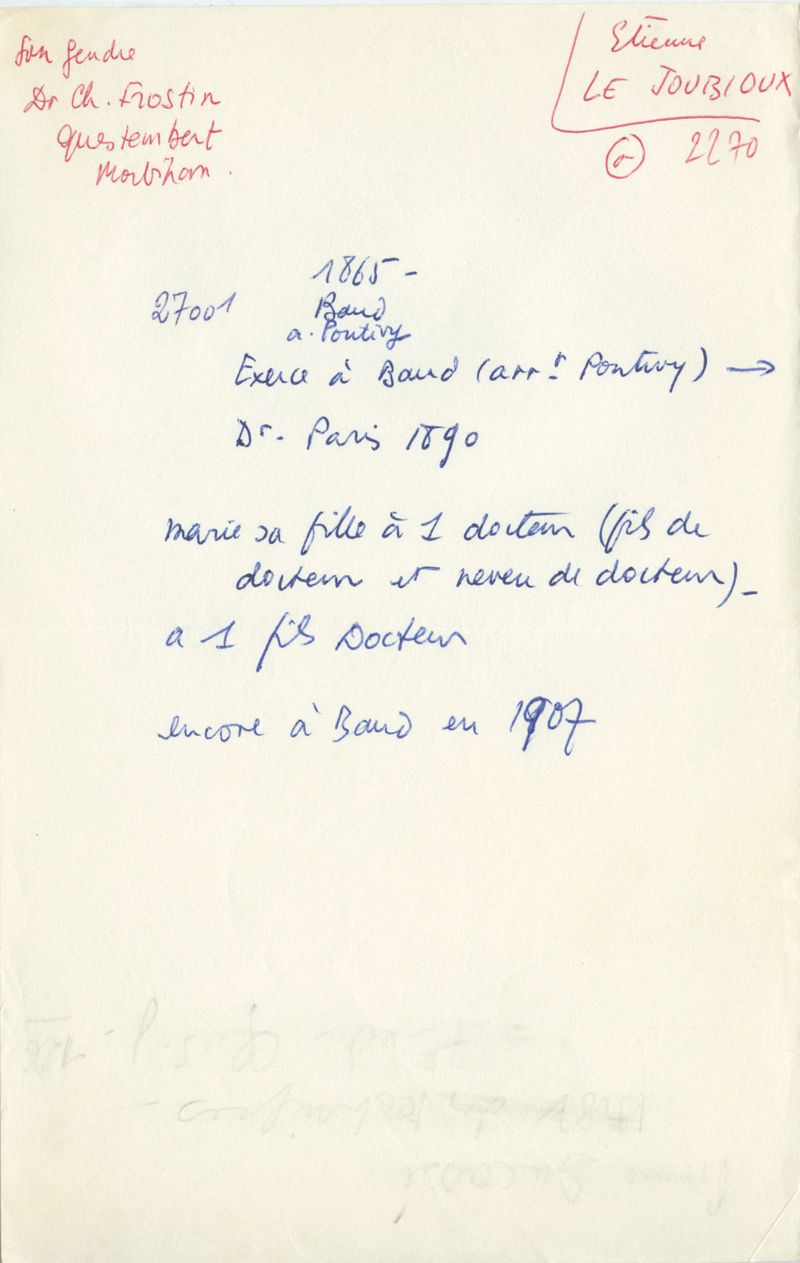 Son gendre
Dr Ch. Frostin
Questembert
Morbihan.
Etienne
LE JOUBIOUX
2270
1865 -
27001 Baud
a. Pontivy
Exerce à Baud (arrt Pontivy) →
Dr. Paris 1890
marie sa fille à 1 docteur (fils de
docteur et neveu de docteur) -
a 1 fils Docteur
encore à Baud en 1907